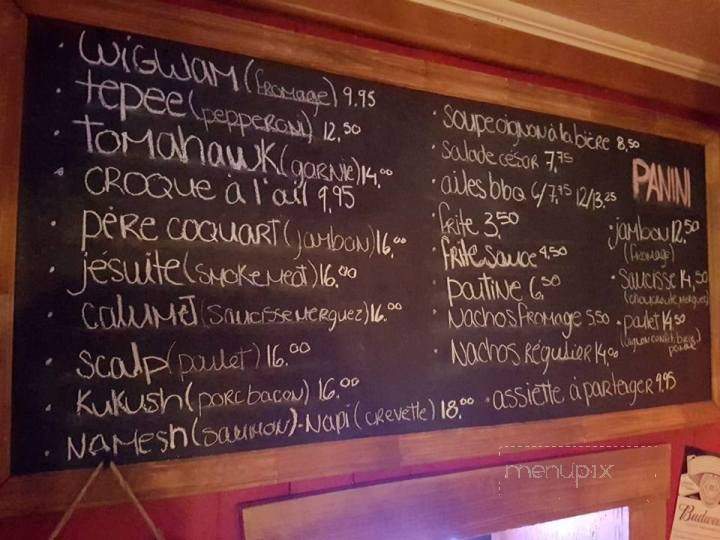 · WIGWAM (FROMAGE) 9.95
· tepee (pepperoni) 12,50
· TOMAHAWK (GARNIE) 14,00
· CROQUE à l'ail 9,95
· PÈRE COQUART (JAMBON) 16,00
· jésuite (SMOKE MEAT) 16.00
· CALUMET (SAUCISSE MERGUEZ) 16.00
· SCALP (poulet) 16.00
· KUKUSH (PORC BACON) 16.00
· NAMESH (SAUMON) - NAPI (CREVETTE) 18.00
· Soupe oignon à la bière 8,50
· salade césar 7,75
· ailes bbq 6/7,95 12/13.25
· frite 3,50
· frite sauce 4,50
· poutine 6,50
· NACHOS FROMAGE 5,50
· NACHOS RÉGULIER 14,00
· assiette à partager 9,95
PANINI
· jambon 12,50
(fromage)
· SAUCISSE 14,50
(choucroute merguez)
· poulet 14,50
(oignon confit brie
menupix
Budwe